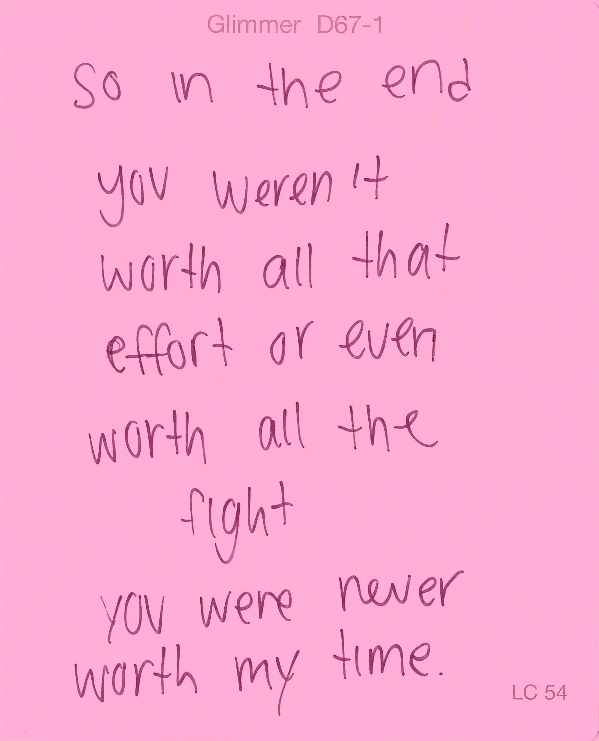 Glimmer D67-1
So in the end
you weren't
worth all that
effort or even
worth all the
fight
you were never
worth my time.
LC 54